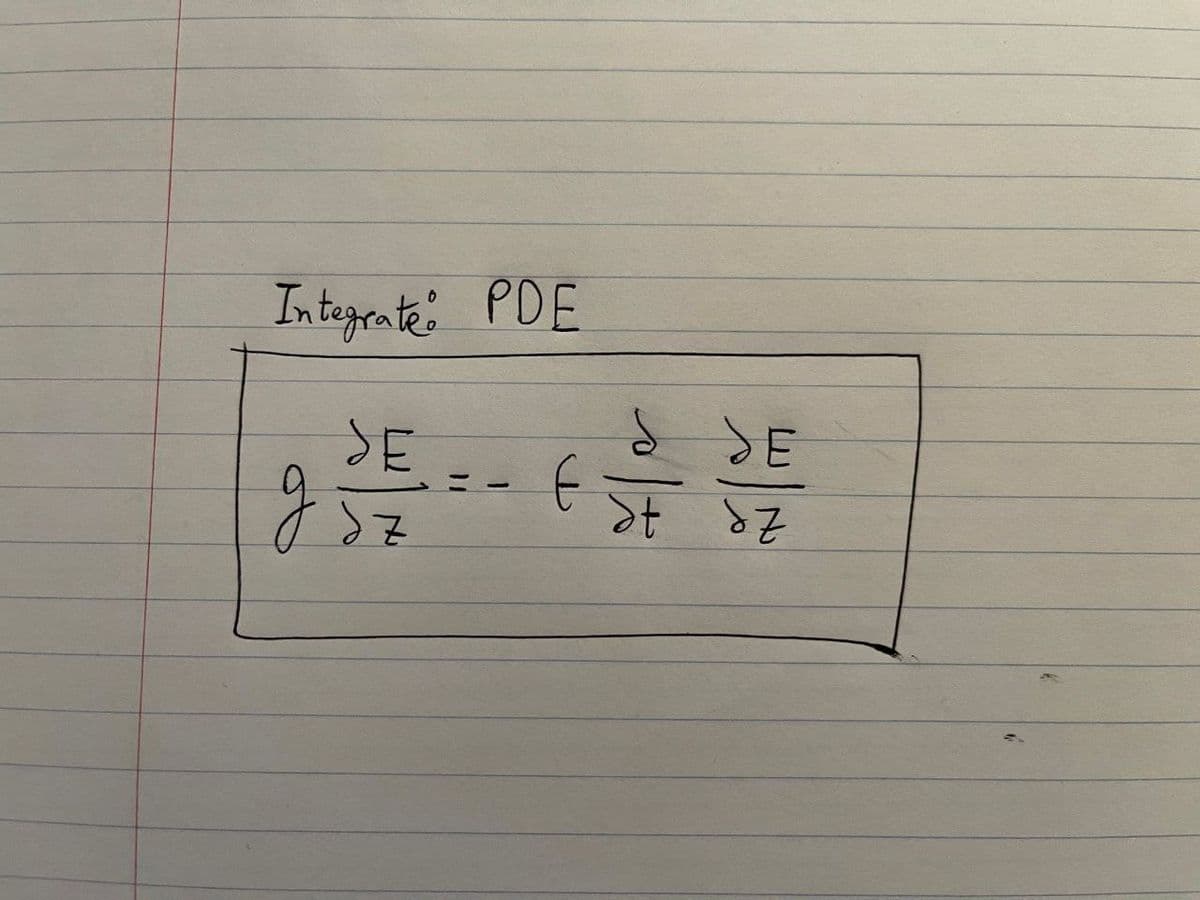 Integrate: PDE
g ∂E/∂z = - ϵ ∂/∂t ∂E/∂z